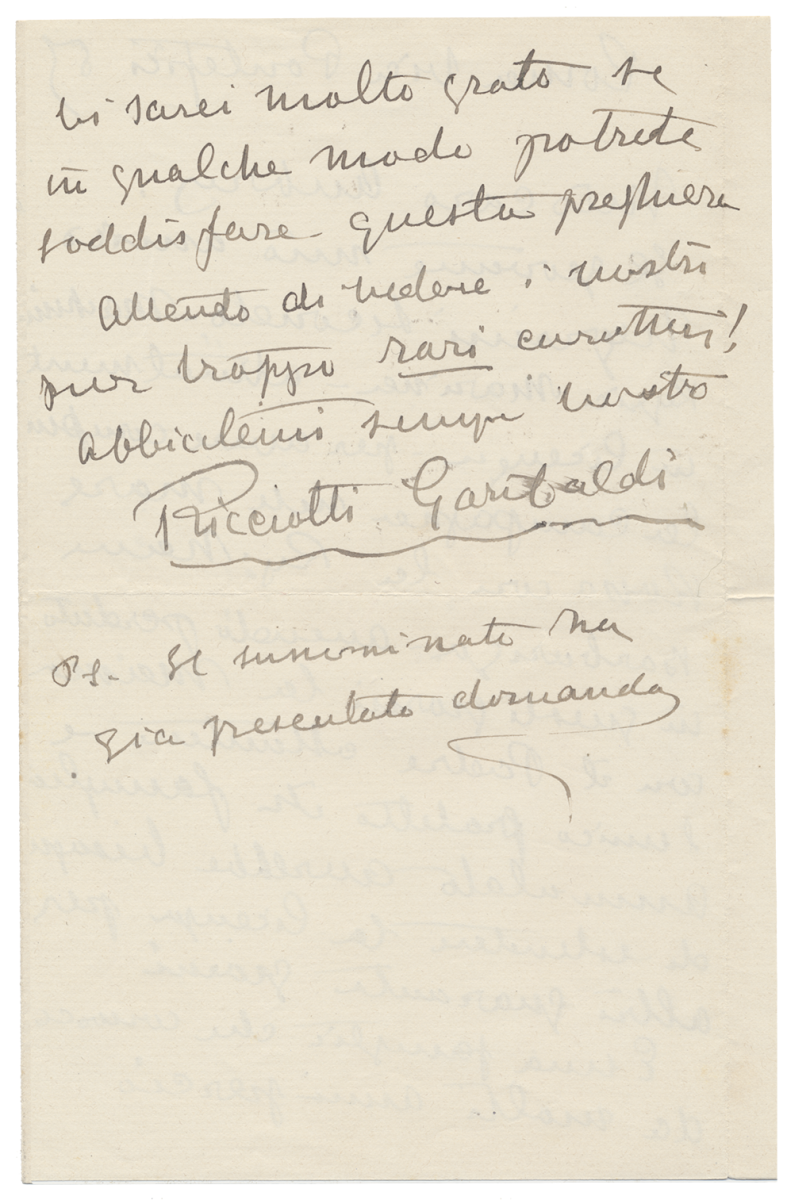 Vi sarei molto grato se
in qualche modo potrete
soddisfare questa preghiera
Attendo di vedere i vostri
pur troppo rari caratteri!
Abbiatemi sempre vostro
Ricciotti Garibaldi
Ps. Il sunnominato ha
gia presentato domanda